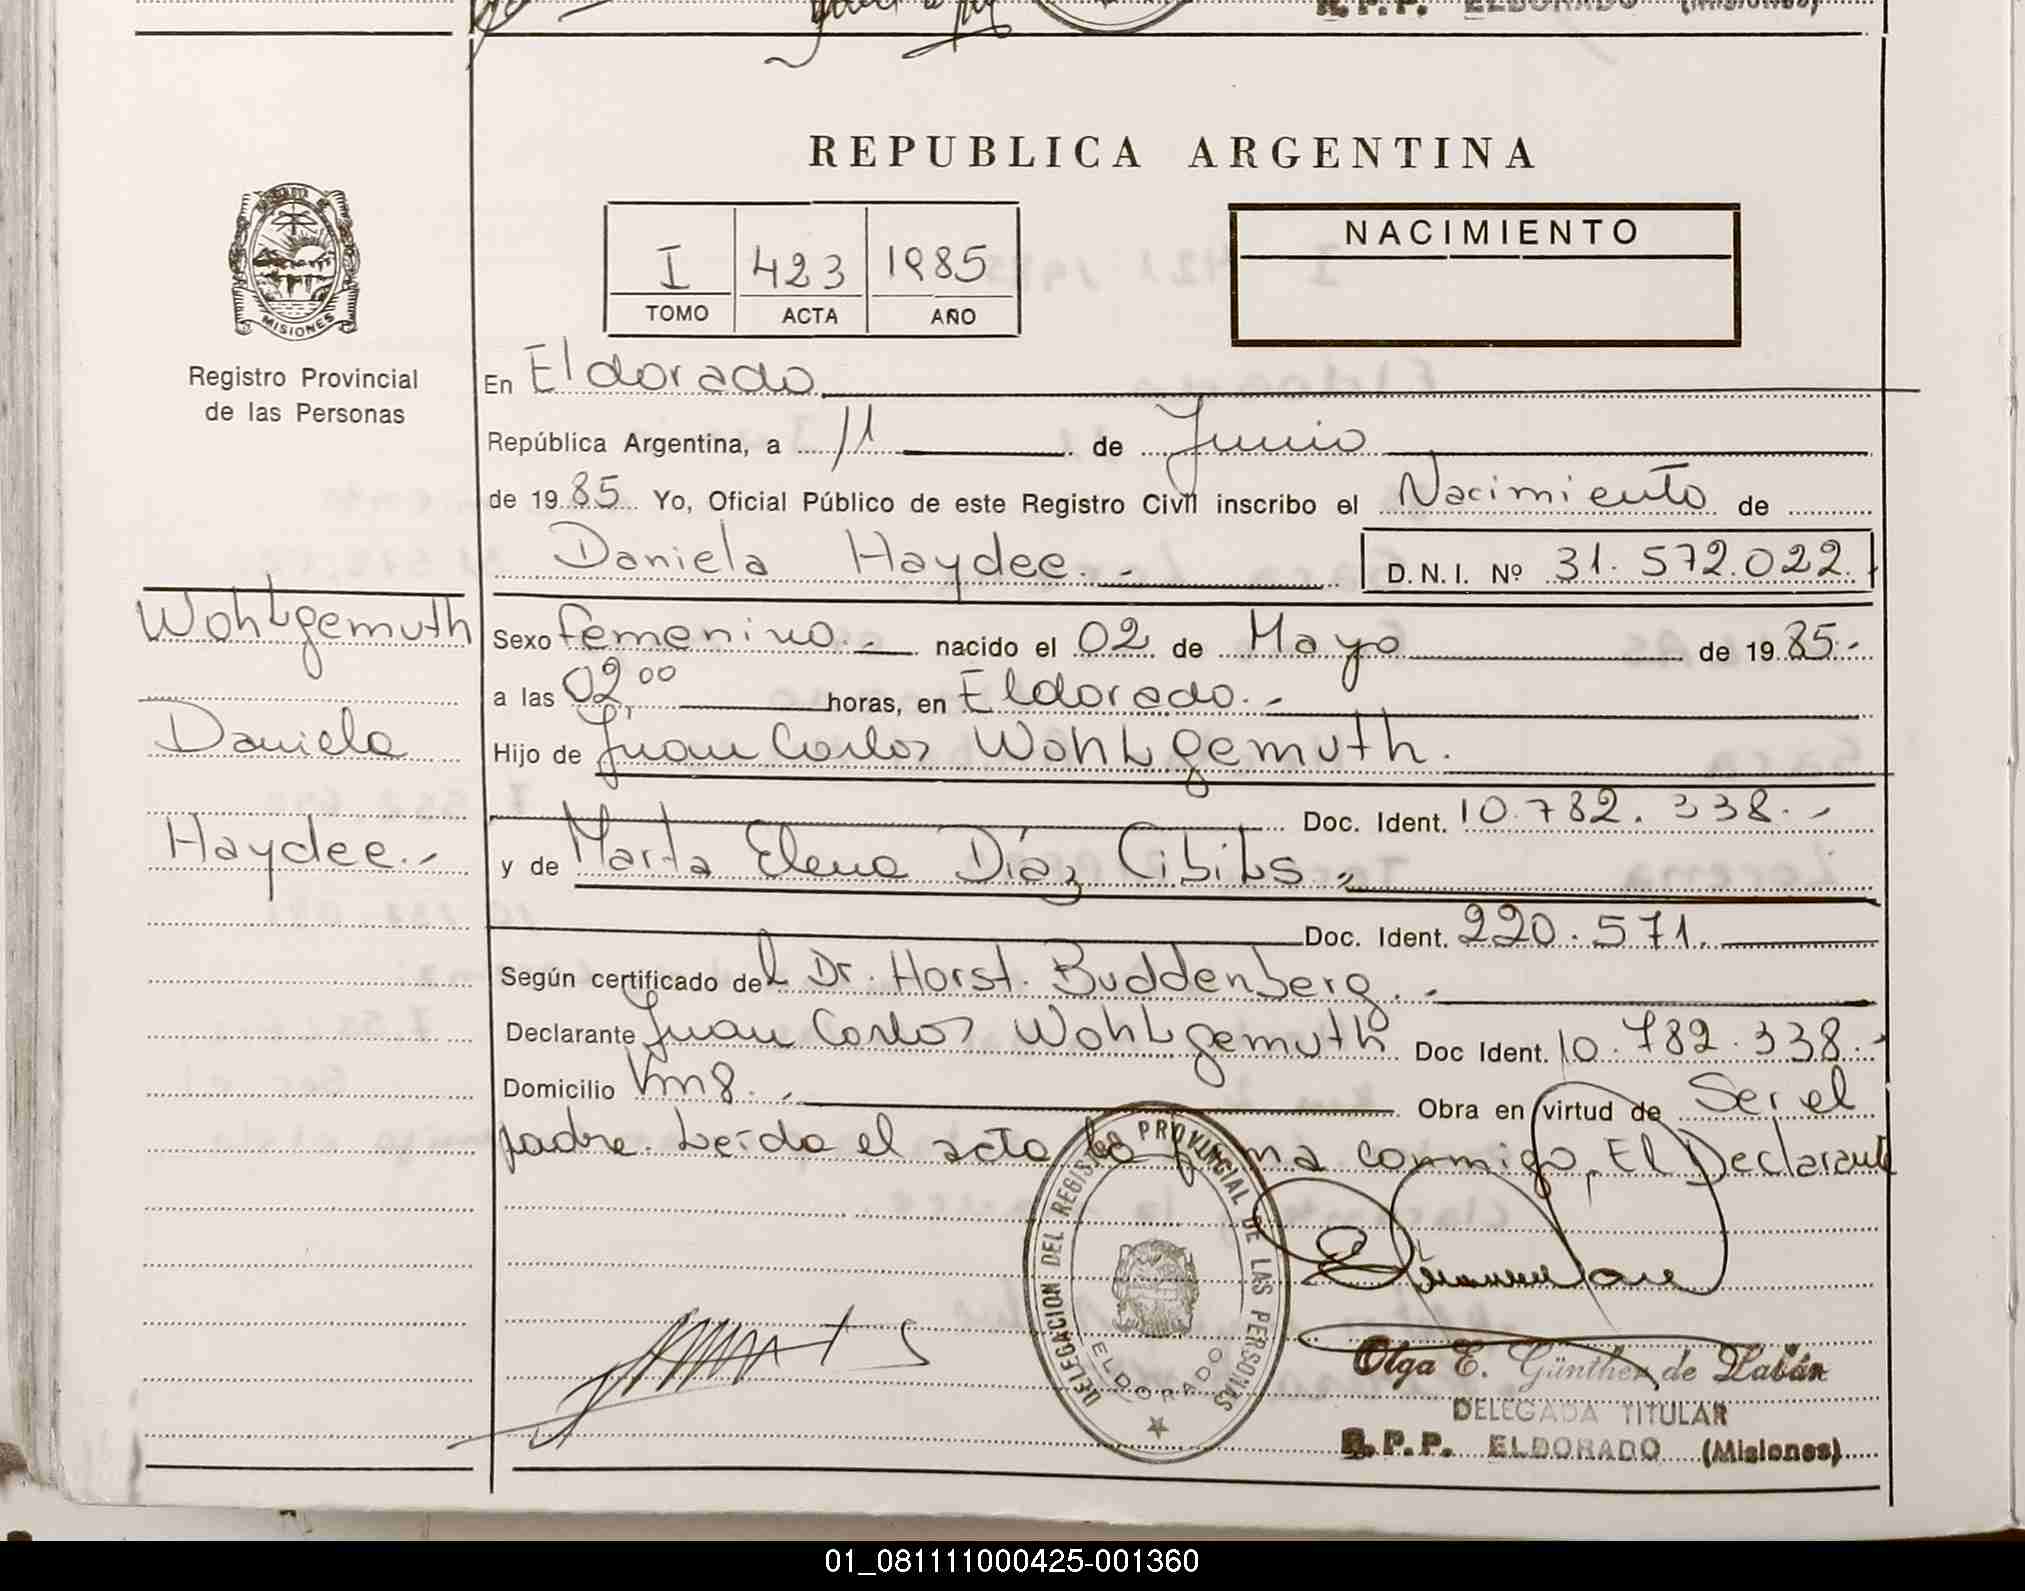 R.P.P. ELDORADO (Misiones)
REPUBLICA ARGENTINA
I 423 1985
TOMO ACTA AÑO
NACIMIENTO
MISIONES
Registro Provincial
de las Personas
En Eldorado
República Argentina, a 11 de Junio
de 1985 Yo, Oficial Público de este Registro Civil inscribo el Nacimiento de
Daniela Haydee.- D.N.I. Nº 31.572.022.
Wohlgemuth
Daniela
Haydee.-
Sexo femenino.- nacido el 02 de Mayo de 1985.-
a las 02,00 horas, en Eldorado.-
Hijo de Juan Carlos Wohlgemuth.
Doc. Ident. 10.782.338.-
y de Marta Elena Díaz Cibils.-
Doc. Ident. 220.571.
Según certificado del Dr. Horst. Buddenberg.-
Declarante Juan Carlos Wohlgemuth Doc Ident. 10.782.338.-
Domicilio Km8.- Obra en virtud de Ser el
padre. Leída el acta la firma conmigo, El Declarante
DELEGACION DEL REGISTRO PROVINCIAL DE LAS PERSONAS
ELDORADO
Olga E. Günther de Zabán
DELEGADA TITULAR
R.P.P. ELDORADO (Misiones)
01_081111000425-001360